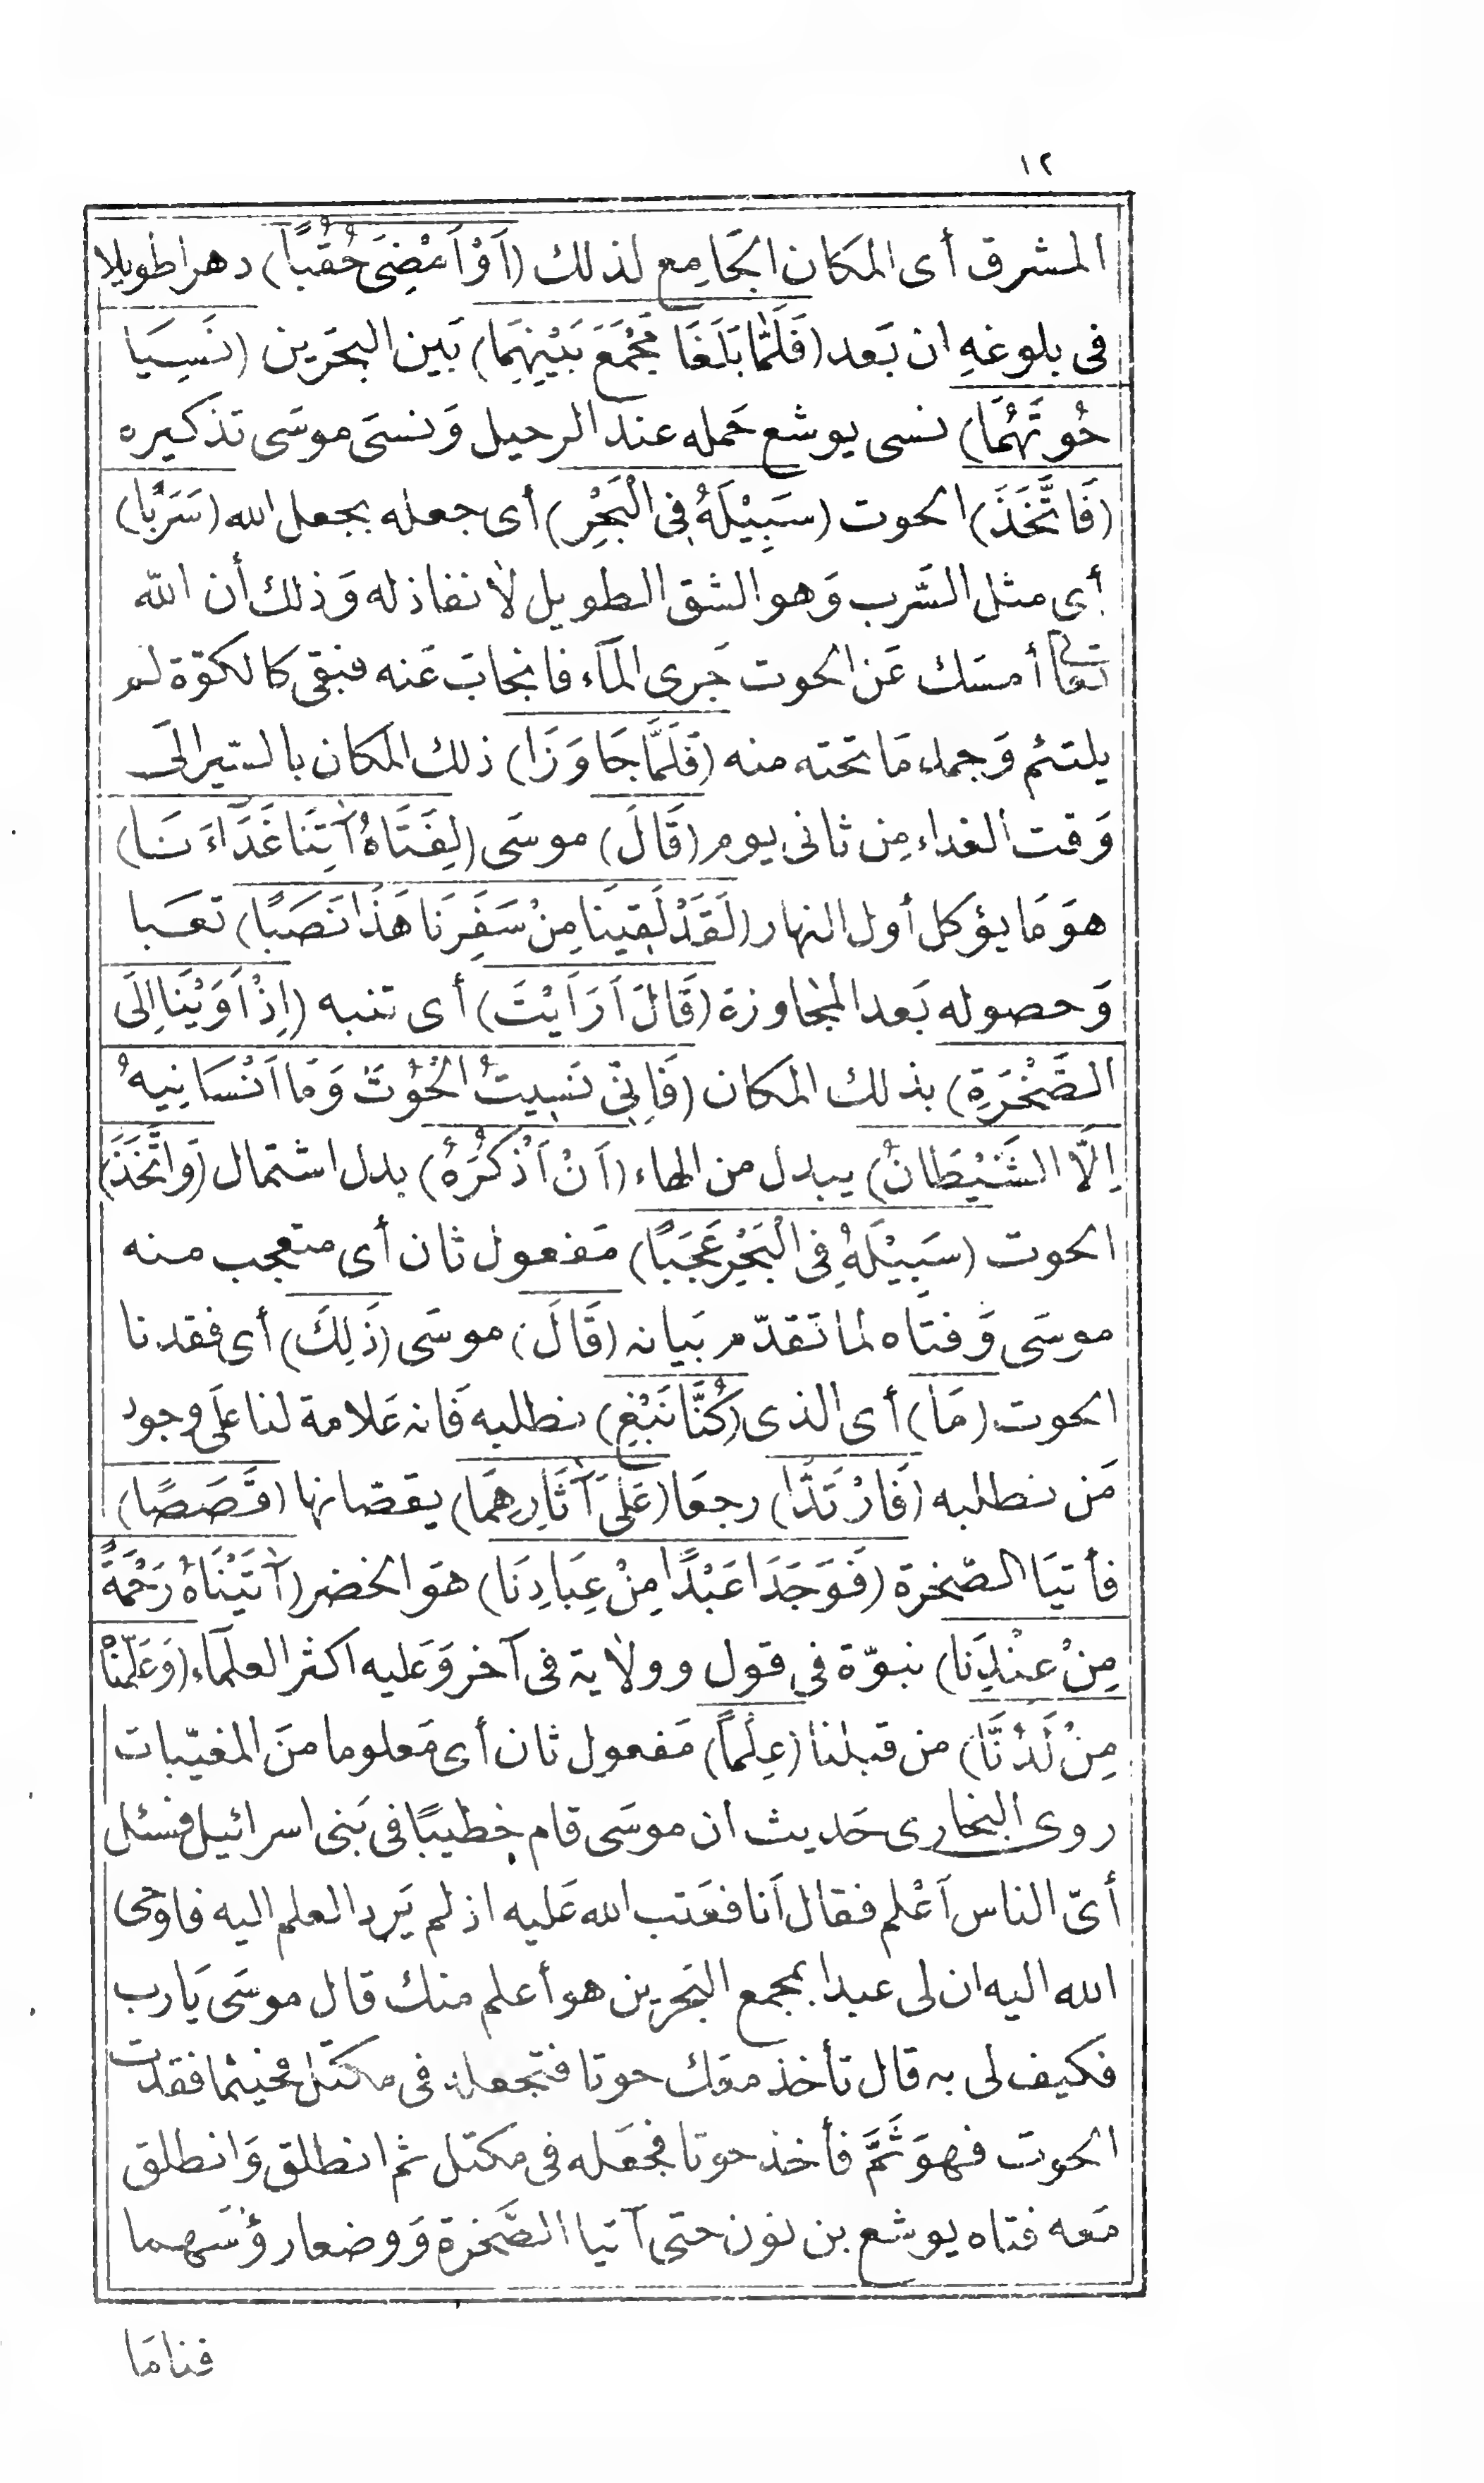 ١٢
المشرق أى المكان الجَامِع لذلك (اَوْ اَمْضِىَ حُقُبًا) دهرا طويلا
فى بلوغهِ ان بَعد (فَلَمَّا بَلَغَا مَجْمَعَ بَيْنِهِمَا) بَين البحَرين (نَسِيَا
حُوتَهُمَا) نسى يوشع حَمله عند الرحيل وَنسَى موسَى تذكيره
(فَاتَّخَذَ) الحوت (سَبِيْلَهُ فِى الْبَحْرِ) أى جعله بجعل الله (سَرَبًا)
أى مثل السَّرب وَهو الشق الطويل لا نفاذ له وَذلك أن الله
تعالى أمسَك عَن الحوت جَرى المَآء فانجابَ عَنه فبقى كالكوّة لم
يلتئم وَجمد مَا تحته منه (فَلَمَّا جَاوَزَا) ذلك المكان بالسّير الَى
وَقت الغداء مِن ثانى يوم (قَالَ) موسَى (لِفَتَاهُ آتِنَا غَدَاءَنَا)
هوَ مَا يؤكل أول النهار (لَقَدْ لَقِيْنَا مِنْ سَفَرِنَا هَذَا نَصَبًا) تعَبا
وَحصوله بَعد المجاوزة (قَالَ اَرَاَيْتَ) أى تنبه (اِذْ اَوَيْنَا اِلَى
الصَّخْرَةِ) بذلك المكان (فَاِنِّى نَسِيتُ الْحُوْتَ وَمَا اَنْسَانِيهُ
اِلَّا الشَّيْطَانُ) يبدل من الهاء (اَنْ اَذْكُرَهُ) بدل اشتمال (وَاتَّخَذَ)
الحوت (سَبِيْلَهُ فِى الْبَحْرِ عَجَبًا) مَفعول ثان أى متعجب منه
موسَى وَفتاه لما تَقدّم بَيانه (قَالَ) موسَى (ذَلِكَ) أى فقدنا
الحوت (مَا) أى الذى (كُنَّا نَبْغِ) نطلبه فَانه عَلامة لنا عَلَى وجود
مَن نطلبه (فَارْتَدَّا) رجعَا (عَلَى آثَارِهِمَا) يقصّانها (قَصَصًا)
فأتيَا الصّخرة (فَوَجَدَا عَبْدًا مِنْ عِبَادِنَا) هوَ الخضر (آتَيْنَاهُ رَحْمَةً
مِنْ عِنْدِنَا) نبوّة فى قول وولاية فى آخر وَعَليه اكثر العلَمَاء (وَعَلَّمْنَاهُ
مِنْ لَدُنَّا) من قبلنا (عِلْمًا) مَفعول ثان أى مَعلوما منَ المغيّبات
روى البخارى حَديث ان موسَى قام خطيبًا فى بَنى اسرائيل فسئل
أىّ الناس اَعْلم فقال اَنا فعَتب الله عَليه اذ لم يَرد العلم اليه فاوحى
الله اليه ان لى عبدا بمجمع البَحرين هو أعلم منك قال موسَى يَارب
فكيف لى به قال تأخذ معَك حوتا فتجعله فى مكتل فحيثما فقدت
الحوتَ فهوَ ثَمَّ فأخذ حوتا فجعَله فى مكتل ثم انطلق وَانطلق
مَعه فتاه يوشع بن نون حتى آتيا الصَّخرة وَوضعا رؤسَهما
فنامَا